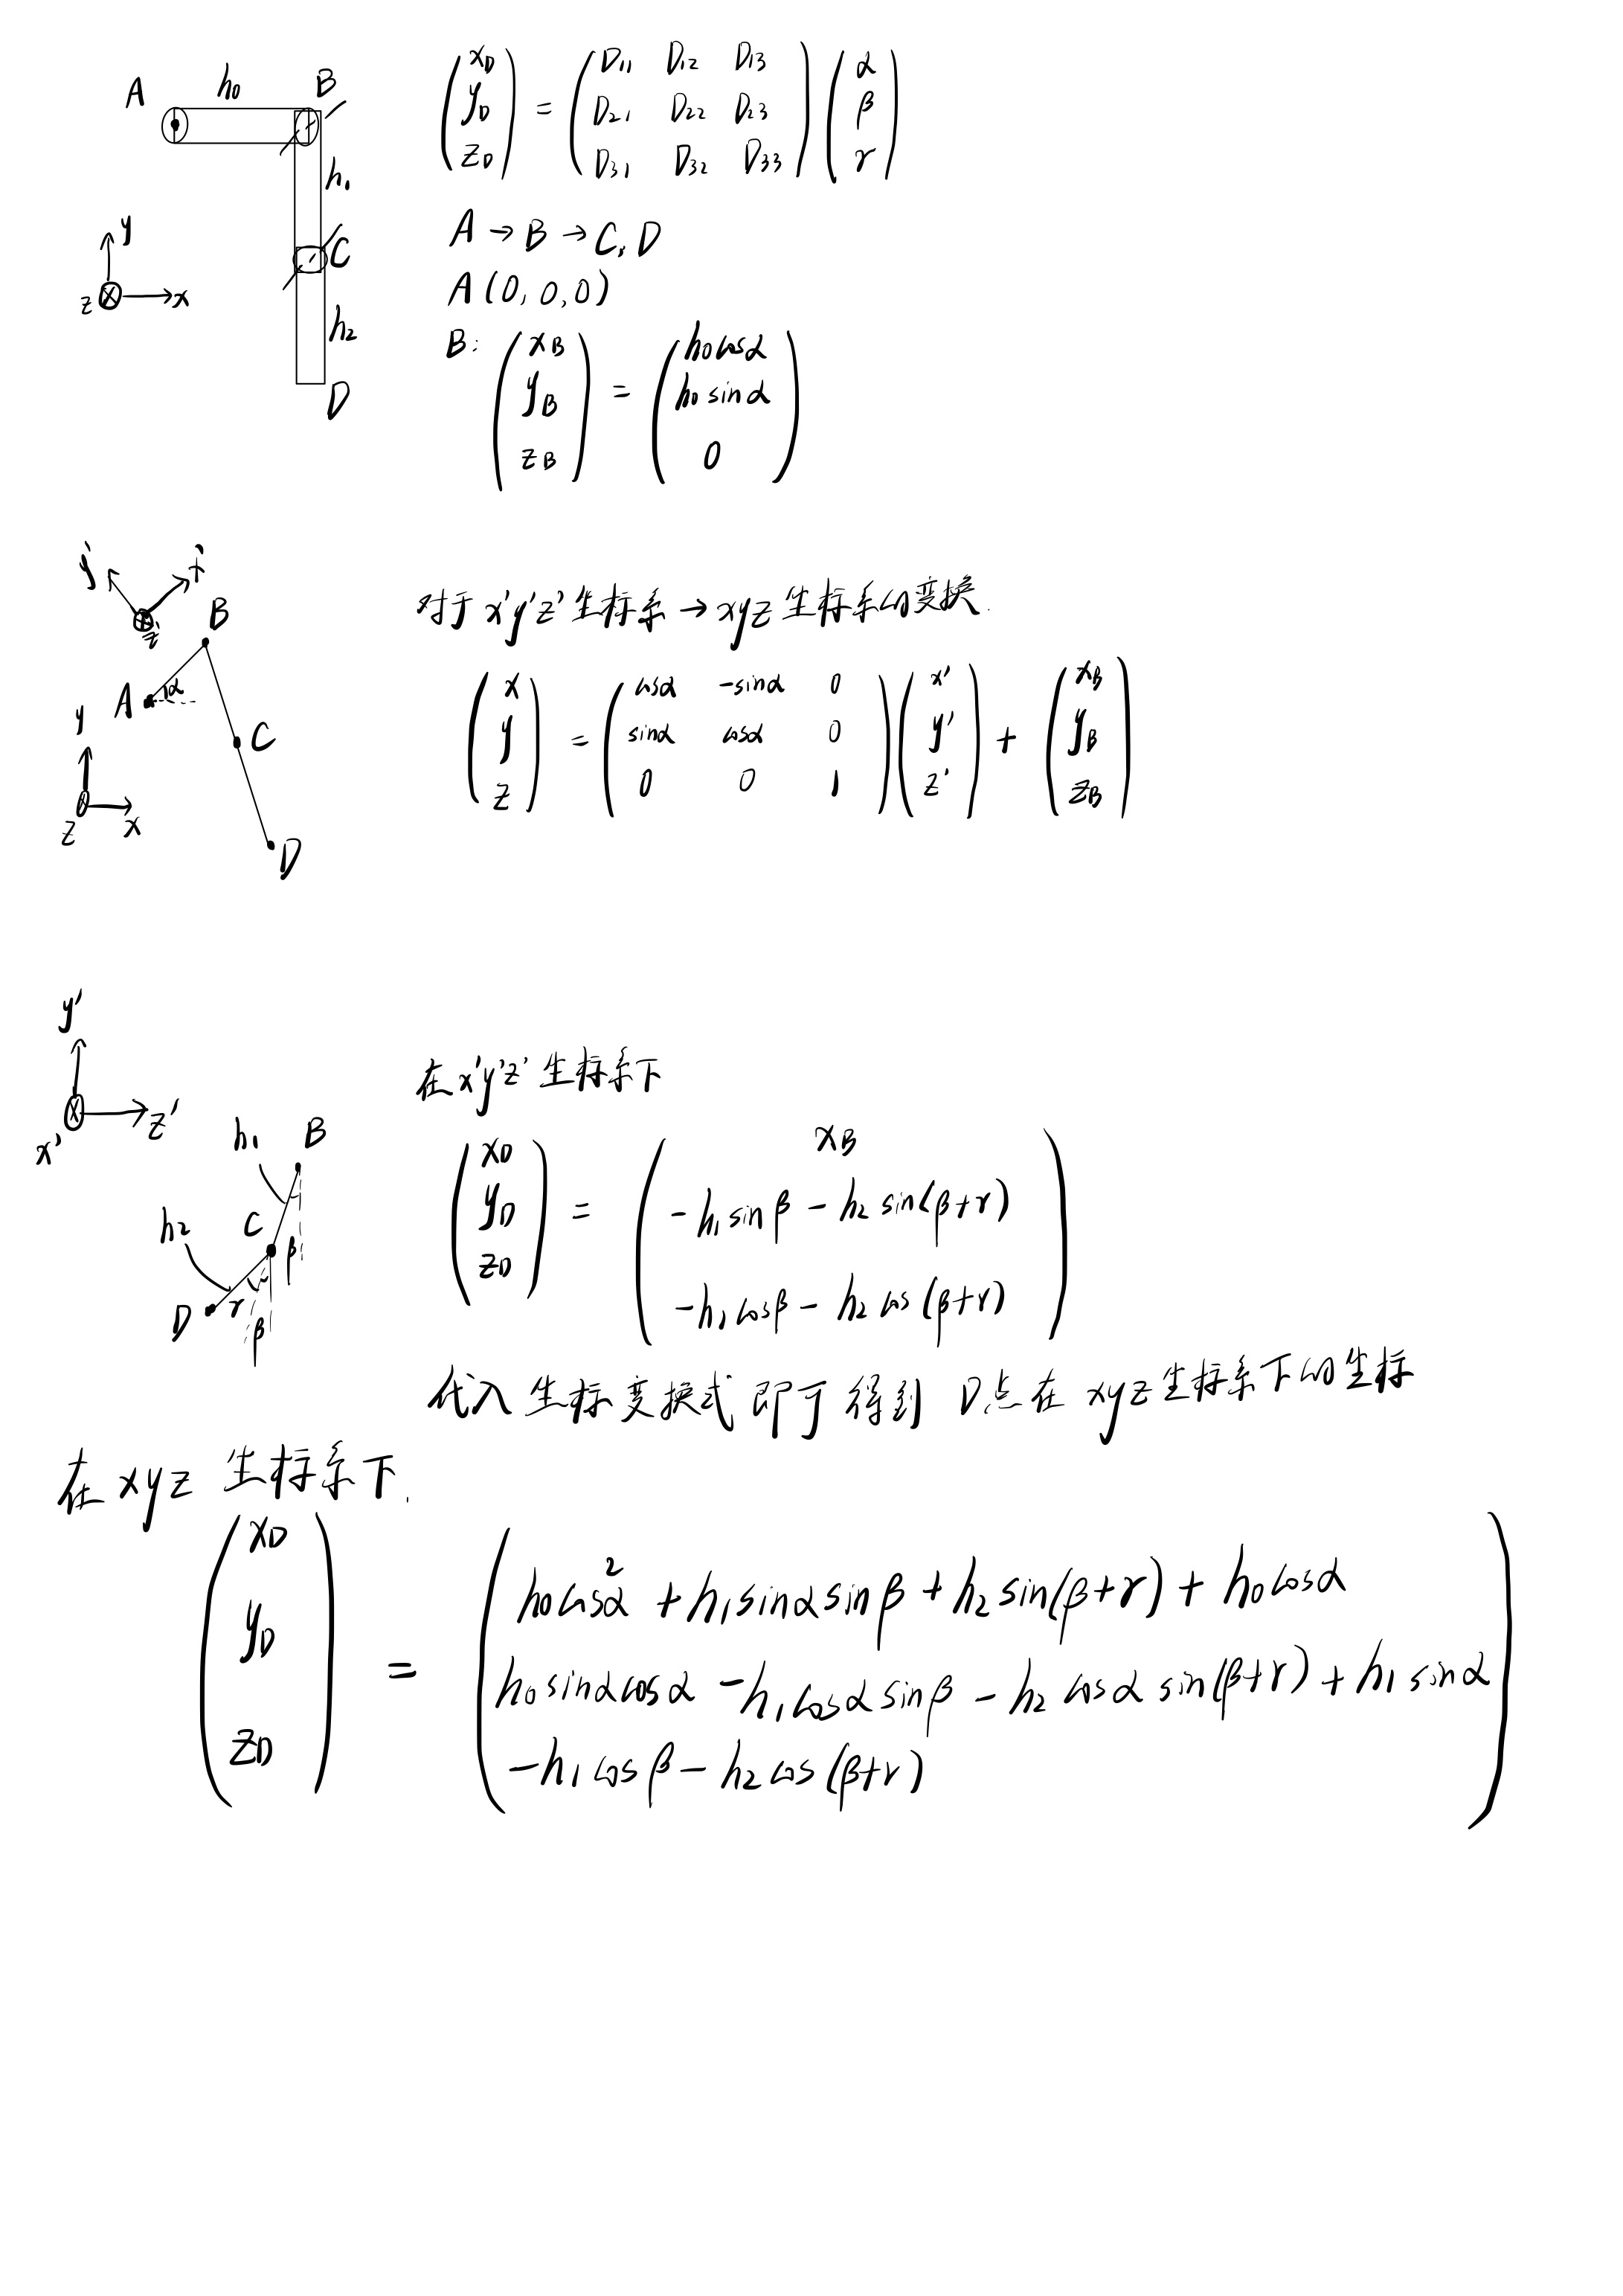 A h₀ B
h₁
C
h₂
D
y
z x
(x_D y_D z_D) = (D₁₁ D₁₂ D₁₃ D₂₁ D₂₂ D₂₃ D₃₁ D₃₂ D₃₃) (α β γ)
A → B → C, D
A (0, 0, 0)
B: (x_B y_B z_B) = (h₀cosα h₀sinα 0)
z'
B
A α
C
D
y
z x
对于 x'y'z' 坐标系 → xyz 坐标系的变换.
(x y z) = (cosα -sinα 0 sinα cosα 0 0 0 1) (x' y' z') + (x_B y_B z_B)
y'
x' z'
h₁ B
h₂ C β
D γ
β
在 x'y'z' 坐标系下
(x_D y_D z_D) = (x_B -h₁sinβ - h₂sin(β+γ) -h₁cosβ - h₂cos(β+γ))
代入坐标变换式即可得到 D点在 xyz坐标系下的坐标
在 xyz 坐标系下.
(x_D y_D z_D) = (h₀cos²α + h₁sinαsinβ + h₂sin(β+γ) + h₀cosα
h₀sinαcosα - h₁cosαsinβ - h₂cosαsin(β+γ) + h₁sinα
-h₁cosβ - h₂cos(β+γ))